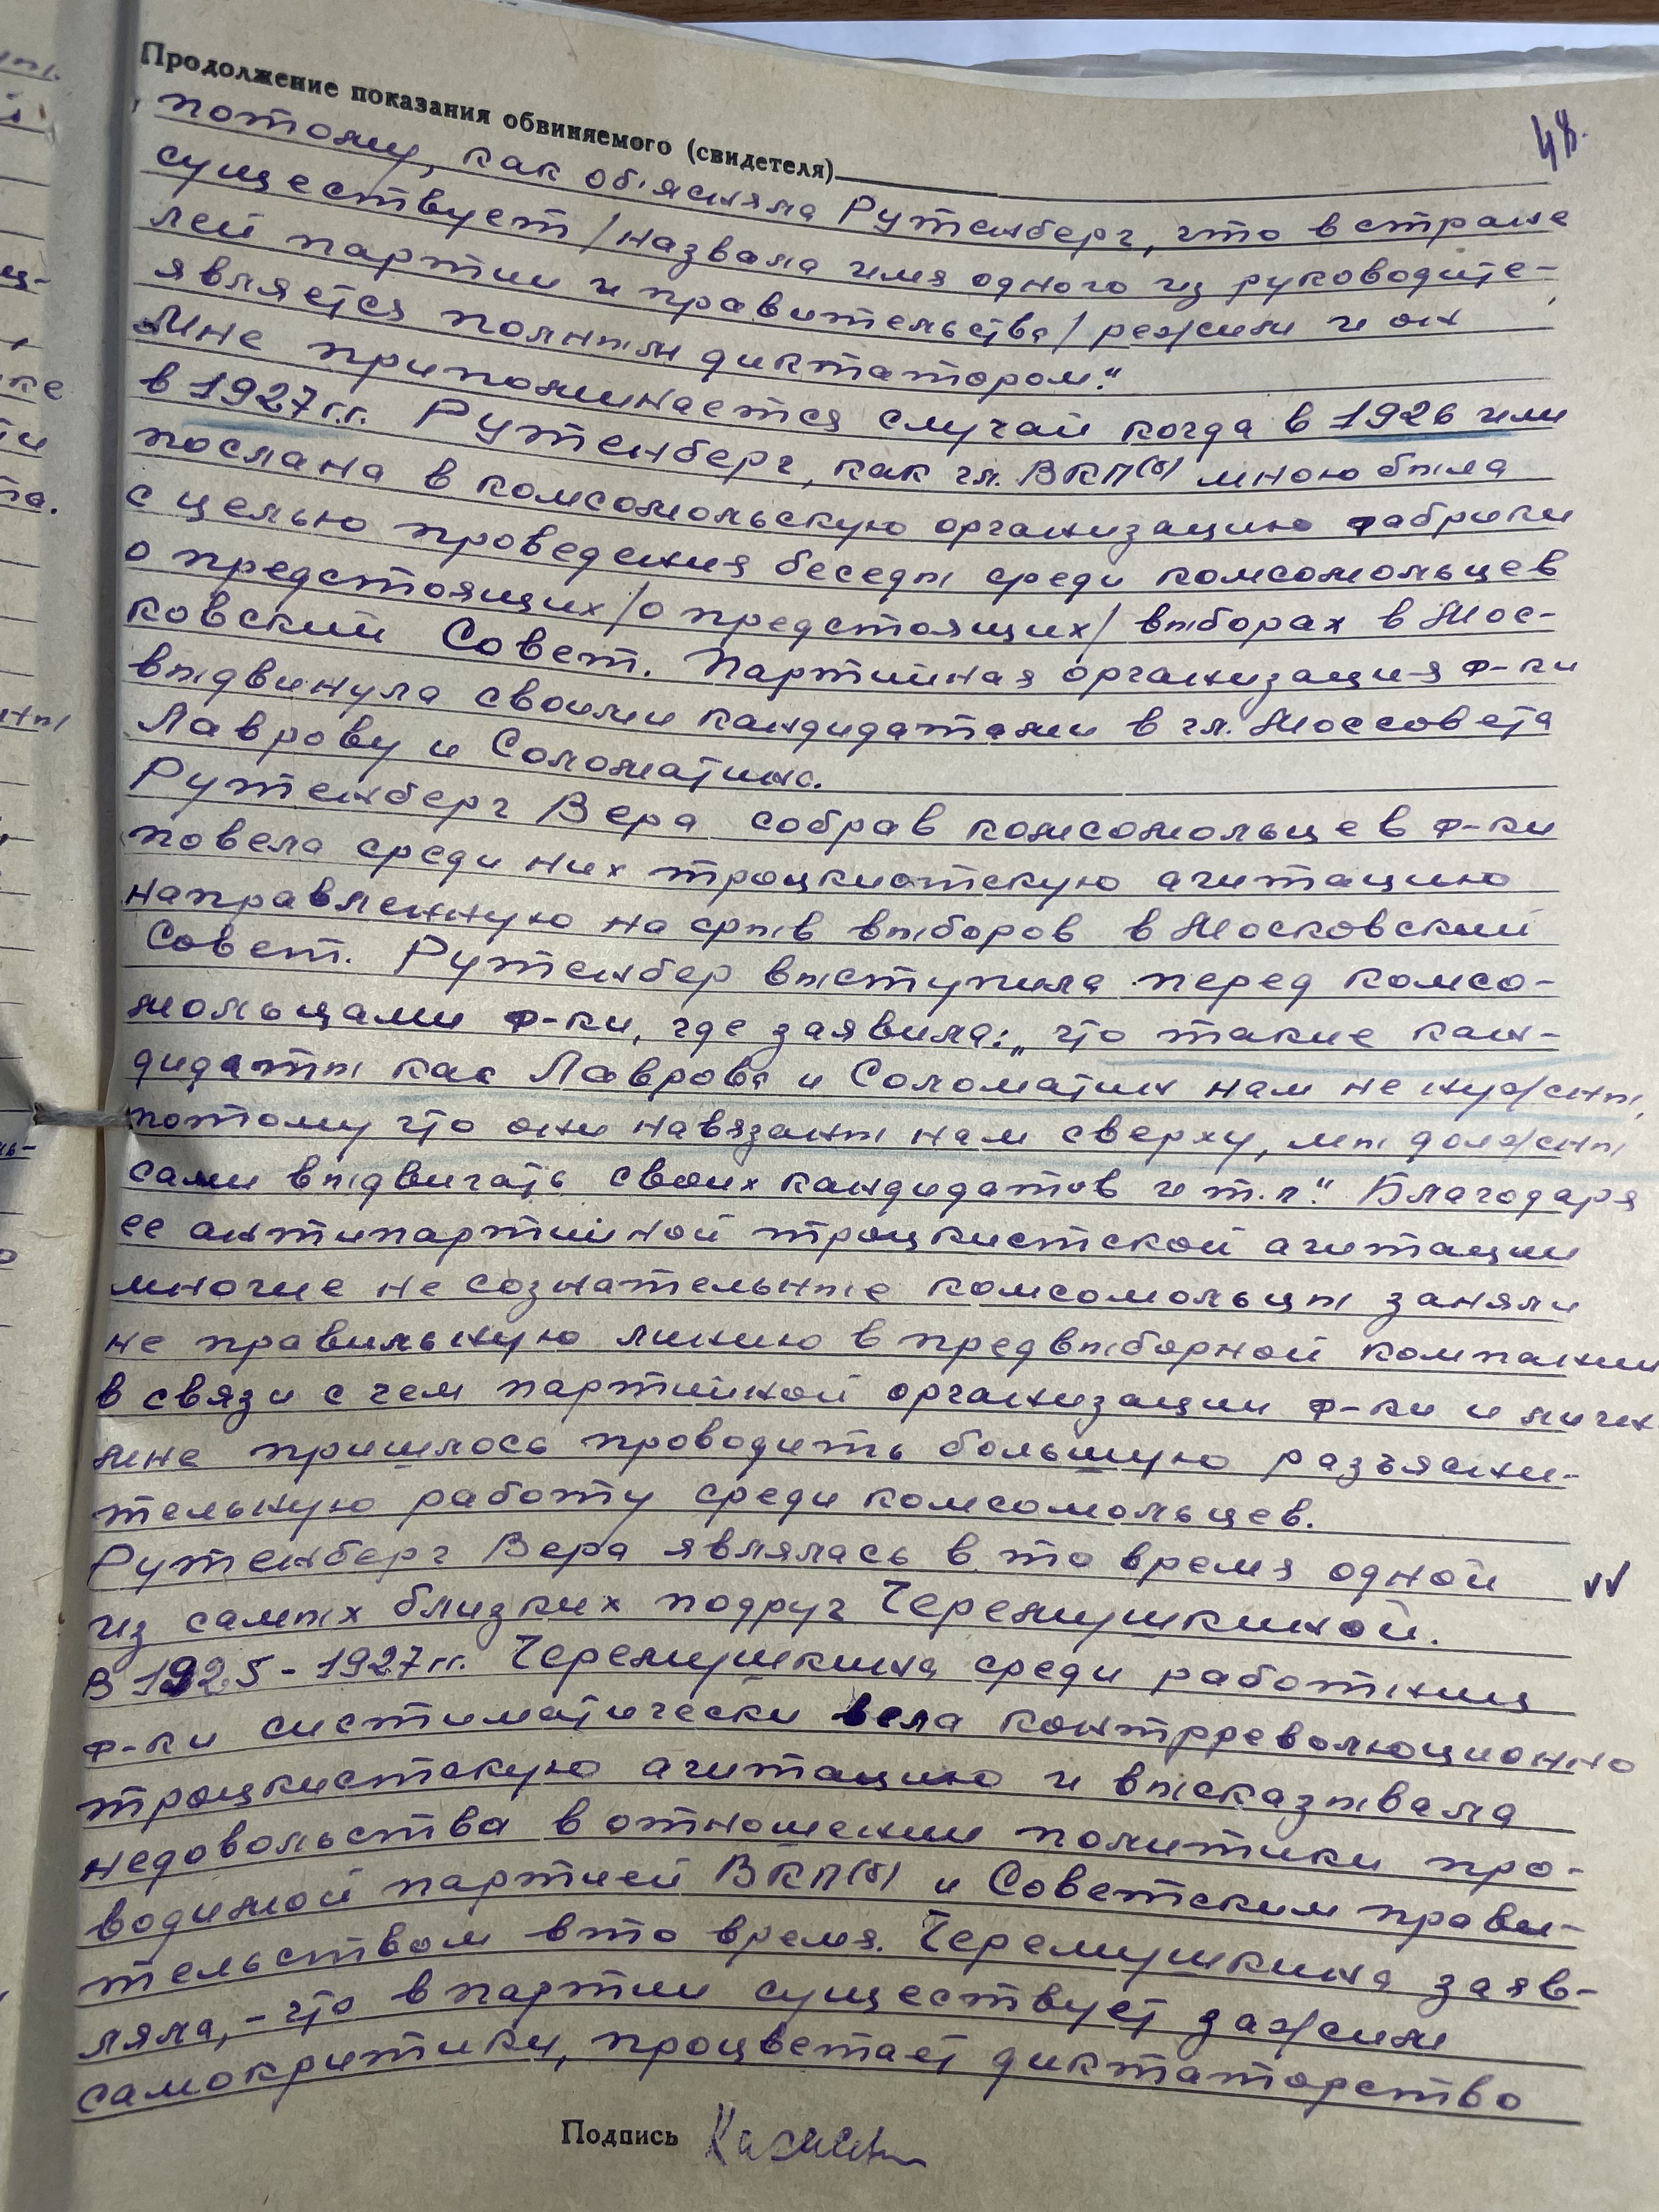 Продолжение показания обвиняемого (свидетеля)
48.
потому, как об'ясняла Рутенберг, что в стране
существует /назвала имя одного из руководите-
лей партии и правительства/ режим и он
является полным диктатором."
Мне припоминается случай когда в 1926 или
в 1927 г.г. Рутенберг, как чл. ВКП(б) мною была
послана в комсомольскую организацию фабрики
с целью проведения беседы среди комсомольцев
о предстоящих /о предстоящих/ выборах в Мос-
ковский Совет. Партийная организация ф-ки
выдвинула своими кандидатами в чл. Моссовета
Лаврову и Соломатина.
Рутенберг Вера собрав комсомольцев ф-ки
повела среди них троцкистскую агитацию
направленную на срыв выборов в Московский
Совет. Рутенбер выступила перед комсо-
мольцами ф-ки, где заявила: „что такие кан-
дидаты как Лаврова и Соломатин нам не нужны,
потому что они навязаны нам сверху, мы должны
сами выдвигать своих кандидатов и т.п." Благодаря
ее антипартийной троцкистской агитации
многие не сознательные комсомольцы заняли
не правильную линию в предвыборной компании
в связи с чем партийной организации ф-ки и личн.
мне пришлось проводить большую разъясни-
тельную работу среди комсомольцев.
Рутенберг Вера являлась в то время одной
из самых близких подруг Черемушкиной.
В 1925-1927 гг. Черемушкина среди работниц
ф-ки систиматически вела контрреволюционно
троцкистскую агитацию и высказывала
недовольства в отношении политики про-
водимой партией ВКП(б) и Советским прави-
тельством в то время. Черемушкина заяв-
ляла, - что в партии существует зажим
самокритики, процветает диктаторство
Подпись